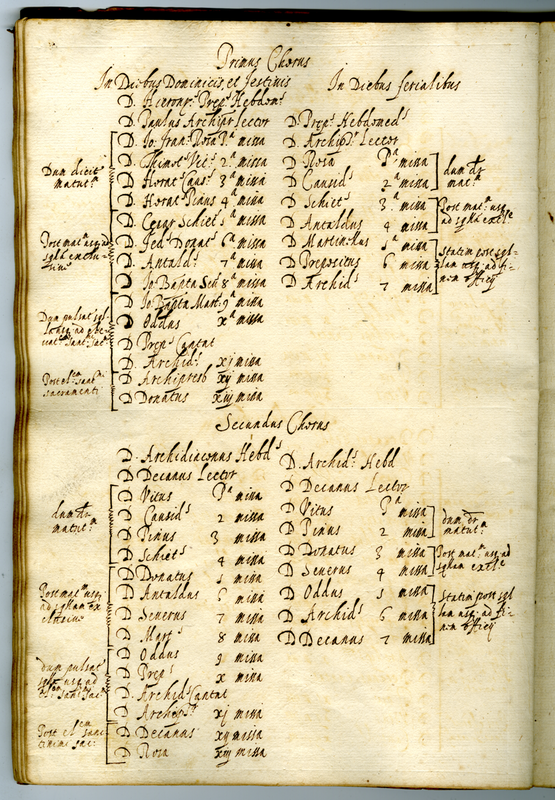 Primus Chorus
In Diebus Dominicis, et festivis
D. Hieron: Prep.s Hebdom.s
D. Paulus Archipr Lector
D. Io: fran: Rosa P.a missa
D. Thimot Vit: 2.a missa
D. Horat Caus: 3.a missa
D. Horat Pinus 4.a missa
D. Cesar Schiet.s 5.a missa
D. Fed. Donat.s 6.a missa
D. Antald.s 7.a missa
D. Io: Bapta Seu: 8.a missa
D. Io: Bapta Mart: 9.a missa
D. Oddus x.a missa
D. Prep.s Cantat
D. Archid.s xj missa
D. Archipresb xij missa
D. Donatus xiij missa
Dum dicit
matut.m
Post mat.m usq, ad
Dum pulsat
Post
sacramenti
In Diebus ferialibus
D. Prep.s Hebdomed.s
D. Archip.r Lector
D. Rosa P.a missa
D. Causid.s 2.a missa
D. Schiet.s 3.a missa
D. Antaldus 4 missa
D. Martinellus 5.a missa
D. Prepositus 6 missa
D. Archid.s 7 missa
dum dr
mat.m
Post mat.m usq,
Statim post
lam usq, ad fi-
nem officij
Secundus Chorus
D. Archidiaconus Hebd.s
D. Decanus Lector
D. Vitus P.a missa
D. Causid.s 2 missa
D. Pinus 3 missa
D. Schiet.s 4 missa
D. Donatus 5 missa
D. Antaldus 6 missa
D. Severus 7 missa
D. Mart.s 8 missa
D. Oddus 9 missa
D. Prep.s x missa
D. Archid.s Cantat
D. Archip.r xj missa
D. Decanus xij missa
D. Rosa xiij missa
dum dr
matut.m
Post mat.m usq,
dum pulsat
Post
D. Archid.s Hebd
D. Decanus Lector
D. Vitus P.a missa
D. Pinus 2 missa
D. Donatus 3 missa
D. Severus 4 missa
D. Oddus 5 missa
D. Archid.s 6 missa
D. Decanus 7 missa
dum dr
matut.m
Post mat.m usq, ad
Statim post
lam usq, ad fi-
nem officij